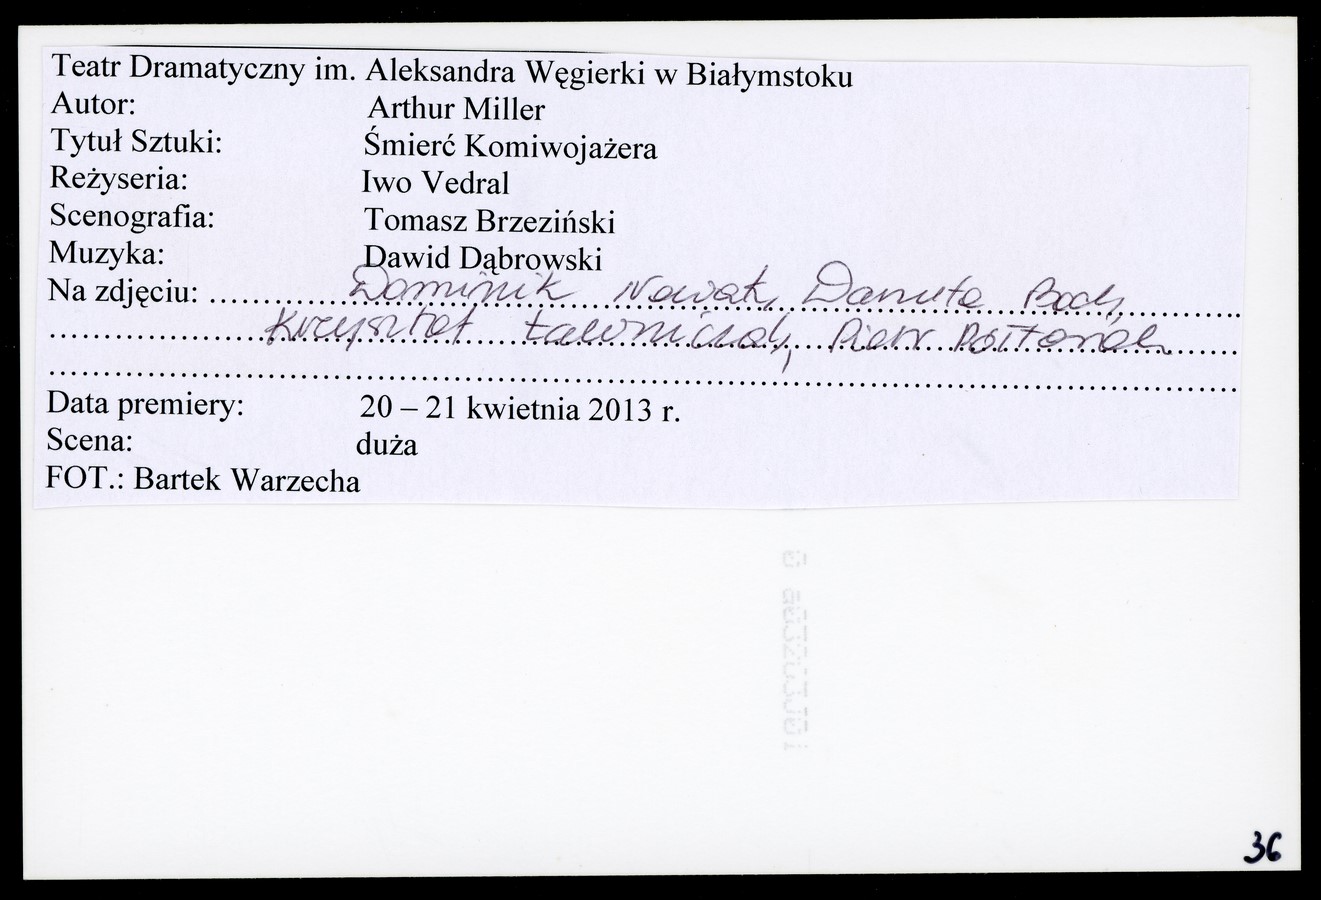 Teatr Dramatyczny im. Aleksandra Węgierki w Białymstoku
Autor: Arthur Miller
Tytuł Sztuki: Śmierć Komiwojażera
Reżyseria: Iwo Vedral
Scenografia: Tomasz Brzeziński
Muzyka: Dawid Dąbrowski
Na zdjęciu: Dominik Nowak, Danuta Bach,
Krzysztof Ławniczak, Piotr Półtorak
Data premiery: 20 – 21 kwietnia 2013 r.
Scena: duża
FOT.: Bartek Warzecha
36